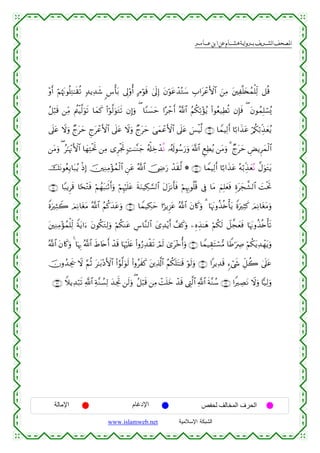 المصحف الشريف برواية هشام عن ابن عامر
قُل لِّلْمُخَلَّفِينَ مِنَ ٱلْأَعْرَابِ سَتُدْعَوْنَ إِلَىٰ قَوْمٍ أُوْلِى بَأْسٍ شَدِيدٍ تُقَٰتِلُونَهُمْ أَوْ
يُسْلِمُونَ ۖ فَإِن تُطِيعُوا۟ يُؤْتِكُمُ ٱللَّهُ أَجْرًا حَسَنًا ۖ وَإِن تَتَوَلَّوْا۟ كَمَا تَوَلَّيْتُم مِّن قَبْلُ
يُعَذِّبْكُمْ عَذَابًا أَلِيمًا ﴿١٦﴾ لَّيْسَ عَلَى ٱلْأَعْمَىٰ حَرَجٌ وَلَا عَلَى ٱلْأَعْرَجِ حَرَجٌ وَلَا عَلَى
ٱلْمَرِيضِ حَرَجٌ ۗ وَمَن يُطِعِ ٱللَّهَ وَرَسُولَهُۥ نُدْخِلْهُ جَنَّٰتٍ تَجْرِى مِن تَحْتِهَا ٱلْأَنْهَٰرُ ۖ وَمَن
يَتَوَلَّ نُعَذِّبْهُ عَذَابًا أَلِيمًا ﴿١٧﴾ ۞ لَّقَدْ رَضِىَ ٱللَّهُ عَنِ ٱلْمُؤْمِنِينَ إِذْ يُبَايِعُونَكَ
تَحْتَ ٱلشَّجَرَةِ فَعَلِمَ مَا فِى قُلُوبِهِمْ فَأَنزَلَ ٱلسَّكِينَةَ عَلَيْهِمْ وَأَثَٰبَهُمْ فَتْحًا قَرِيبًا ﴿١٨﴾
وَمَغَانِمَ كَثِيرَةً يَأْخُذُونَهَا ۗ وَكَانَ ٱللَّهُ عَزِيزًا حَكِيمًا ﴿١٩﴾ وَعَدَكُمُ ٱللَّهُ مَغَانِمَ كَثِيرَةً
تَأْخُذُونَهَا فَعَجَّلَ لَكُمْ هَٰذِهِۦ وَكَفَّ أَيْدِىَ ٱلنَّاسِ عَنكُمْ وَلِتَكُونَ ءَايَةً لِّلْمُؤْمِنِينَ
وَيَهْدِيَكُمْ صِرَٰطًا مُّسْتَقِيمًا ﴿٢٠﴾ وَأُخْرَىٰ لَمْ تَقْدِرُوا۟ عَلَيْهَا قَدْ أَحَاطَ ٱللَّهُ بِهَا ۚ وَكَانَ ٱللَّهُ
عَلَىٰ كُلِّ شَىْءٍ قَدِيرًا ﴿٢١﴾ وَلَوْ قَٰتَلَكُمُ ٱلَّذِينَ كَفَرُوا۟ لَوَلَّوُا۟ ٱلْأَدْبَٰرَ ثُمَّ لَا يَجِدُونَ
وَلِيًّا وَلَا نَصِيرًا ﴿٢٢﴾ سُنَّةَ ٱللَّهِ ٱلَّتِى قَدْ خَلَتْ مِن قَبْلُ ۖ وَلَن تَجِدَ لِسُنَّةِ ٱللَّهِ تَبْدِيلًا ﴿٢٣﴾
الحرف المخالف لحفص الإدغام الإمالة
الشبكة الإسلامية www.islamweb.net